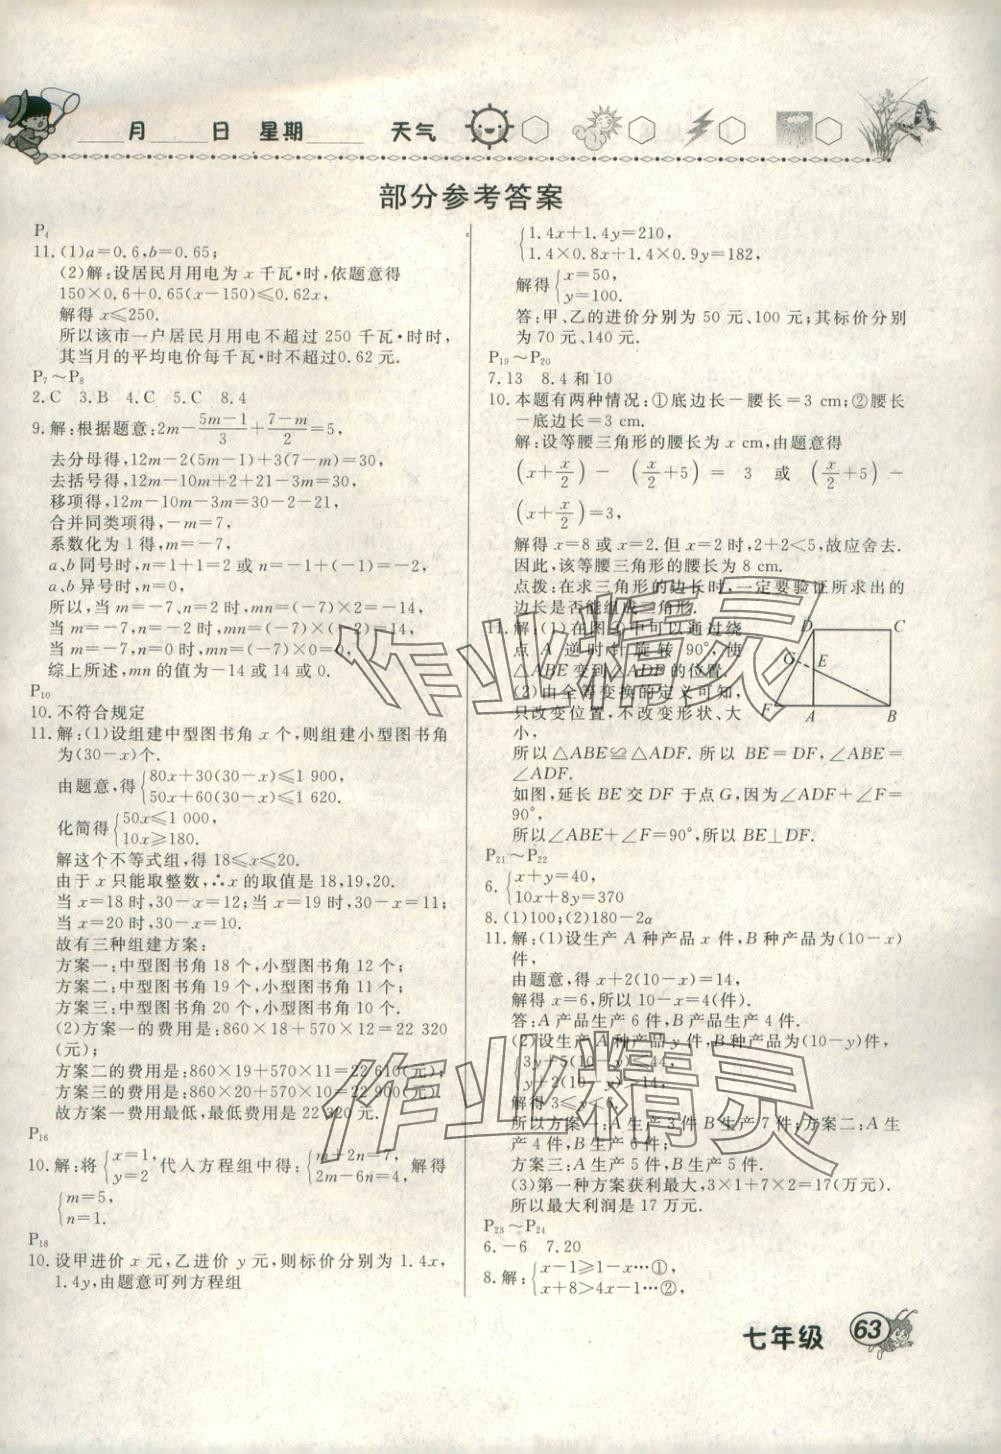 月 日 星期 天气
部分参考答案
P4
11.(1)a=0.6,b=0.65;
(2)解:设居民月用电为 x 千瓦·时,依题意得
150×0.6+0.65(x-150)≤0.62x,
解得 x≤250.
所以该市一户居民月用电不超过 250 千瓦·时时,
其当月的平均电价每千瓦·时不超过0.62 元.
P7～P8
2.C 3.B 4.C 5.C 8.4
9.解:根据题意:2m-(5m-1)/3+(7-m)/2=5,
去分母得,12m-2(5m-1)+3(7-m)=30,
去括号得,12m-10m+2+21-3m=30,
移项得,12m-10m-3m=30-2-21,
合并同类项得,-m=7,
系数化为 1 得,m=-7,
a、b 同号时,n=1+1=2 或 n=-1+(-1)=-2,
a、b 异号时,n=0,
所以,当 m=-7、n=2 时,mn=(-7)×2=-14,
当 m=-7,n=-2 时,mn=(-7)×(-2)=14,
当 m=-7,n=0时,mn=(-7)×0=0,
综上所述,mn 的值为-14 或 14 或 0.
P10
10.不符合规定
11.解:(1)设组建中型图书角 x 个,则组建小型图书角
为(30-x)个.
由题意,得{80x+30(30-x)≤1 900,
50x+60(30-x)≤1 620.
化简得{50x≤1 000,
10x≥180.
解这个不等式组,得 18≤x≤20.
由于 x 只能取整数,∴x 的取值是 18,19,20.
当 x=18 时,30-x=12;当 x=19 时,30-x=11;
当 x=20 时,30-x=10.
故有三种组建方案:
方案一:中型图书角 18 个,小型图书角 12 个;
方案二:中型图书角 19 个,小型图书角 11 个;
方案三:中型图书角 20 个,小型图书角 10 个.
(2)方案一的费用是:860×18+570×12=22 320
(元);
方案二的费用是:860×19+570×11=22 610(元);
方案三的费用是:860×20+570×10=22 900(元).
故方案一费用最低,最低费用是 22 320 元.
P16
10.解:将{x=1, y=2 代入方程组中得:{m+2n=7, 2m-6n=4, 解得
{m=5,
n=1.
P18
10.设甲进价 x 元,乙进价 y 元,则标价分别为 1.4x,
1.4y,由题意可列方程组
{1.4x+1.4y=210,
1.4×0.8x+1.4×0.9y=182,
解得{x=50,
y=100.
答:甲、乙的进价分别为 50 元、100 元;其标价分别
为 70 元、140 元.
P19～P20
7.13 8.4 和 10
10.本题有两种情况:①底边长-腰长=3 cm;②腰长
-底边长=3 cm.
解:设等腰三角形的腰长为 x cm,由题意得
(x+x/2)-(x/2+5)=3 或 (x/2+5)-
(x+x/2)=3,
解得 x=8 或 x=2.但 x=2 时,2+2<5,故应舍去.
因此,该等腰三角形的腰长为 8 cm.
点拨:在求三角形的边长时,一定要验证所求出的
边长是否能组成三角形.
11.解:(1)在图中可以通过绕
点 A 逆时针旋转 90°,使
△ABE 变到△ADF 的位置.
(2)由全等变换的定义可知,
只改变位置,不改变形状、大
小,
D C
G E
F A B
所以 △ABE≌△ADF. 所以 BE=DF,∠ABE=
∠ADF.
如图,延长 BE 交 DF 于点 G,因为∠ADF+∠F=
90°,
所以∠ABE+∠F=90°,所以 BE⊥DF.
P21～P22
6.{x+y=40,
10x+8y=370
8.(1)100;(2)180-2α
11.解:(1)设生产 A 种产品 x 件,B 种产品为(10-x)
件,
由题意,得 x+2(10-x)=14,
解得 x=6,所以 10-x=4(件).
答:A 产品生产 6 件,B 产品生产 4 件.
(2)设生产 A 种产品 y 件,B 种产品为(10-y)件,
{3y+5(10-y)≤44,
y+2(10-y)>14,
解得 3≤y<6.
所以方案一:A 生产 3 件 B 生产 7 件;方案二:A 生
产 4 件,B 生产 6 件;
方案三:A 生产 5 件,B 生产 5 件.
(3)第一种方案获利最大,3×1+7×2=17(万元).
所以最大利润是 17 万元.
P23～P24
6.-6 7.20
8.解:{x-1≥1-x…①,
x+8>4x-1…②,
作业精灵
作业精灵
七年级 63